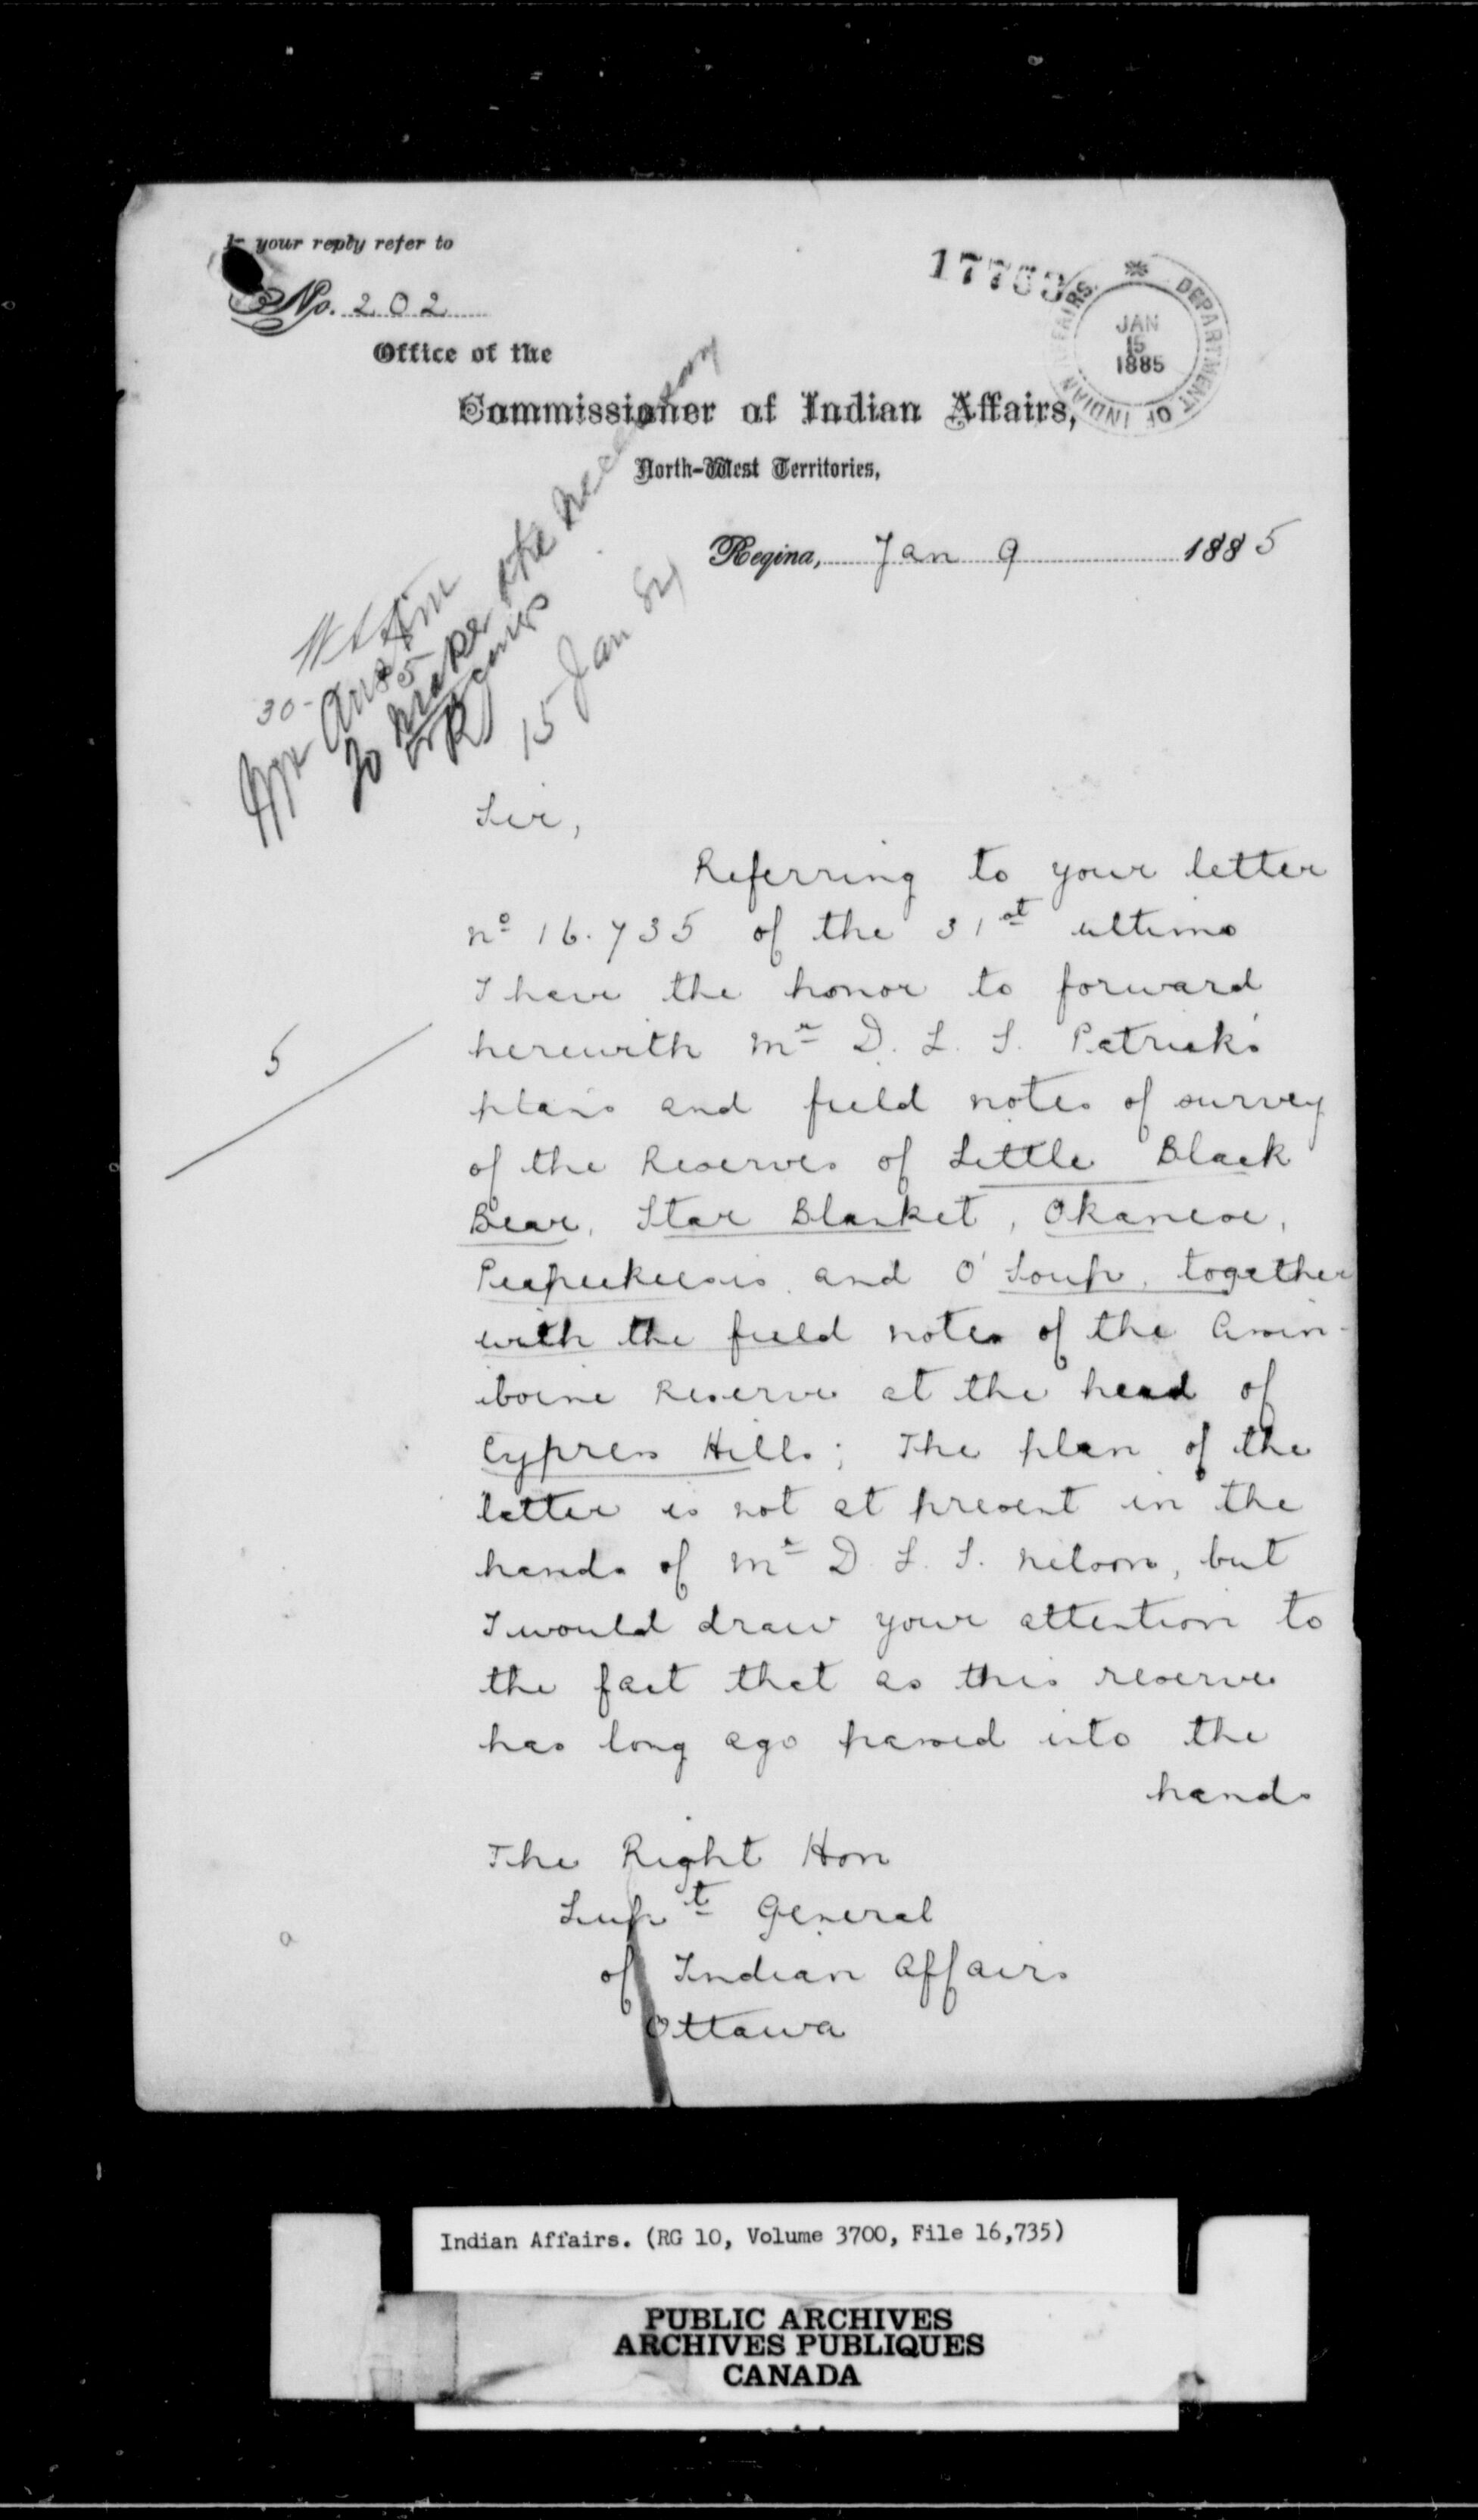 In your reply refer to
No. 202
Office of the
Commissioner of Indian Affairs,
North-West Territories,
DEPARTMENT OF INDIAN AFFAIRS.
JAN
15
1885
Regina, Jan 9 1885
to make the necessary
15 Jan 85
Sir,
Referring to your letter
nº 16.735 of the 31st ultimo
I have the honor to forward
herewith Mr D. L. S. Patrick's
plans and field notes of survey
of the Reserves of Little Black
Bear, Star Blanket, Okanese,
Peepeekeesis and O'Soup, together
with the field notes of the Assin-
iboine Reserve at the head of
Cypress Hills; The plan of the
latter is not at present in the
hands of Mr D. L. S. Nelson, but
I would draw your attention to
the fact that as this reserve
has long ago passed into the
hands
5
The Right Hon
Supt General
of Indian Affairs
Ottawa
Indian Affairs. (RG 10, Volume 3700, File 16,735)
PUBLIC ARCHIVES
ARCHIVES PUBLIQUES
CANADA